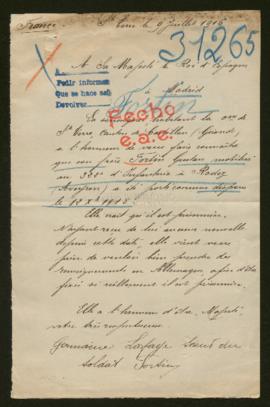 France
St Terre le 9 Juillet 1916
31265
A Sa Majesté le Roi d'Espagne
à Madrid
A
Pedir informes
Que se hace saber
Devolver
Fortin
Fecho
e.a.e.
La soussignée habitant la cne de
St Terre, canton de Castillon (Gironde)
a l'honneur de vous faire connaître
que son frère Fortin Gaetan mobilisé
au 322e d'Infanterie à Rodez
(Aveyron) a été porté comme disparu
le 1915
Elle croit qu'il est prisonnier.
N'ayant reçu de lui aucune nouvelle
depuis cette date, elle vient vous
prier de vouloir bien prendre des
renseignements en Allemagne, afin d'être
fixé si réellement il est prisonnier.
Elle a l'honneur d'être, Majesté,
votre très respectueuse
Germaine Lafaye Soeur du
soldat Fortin